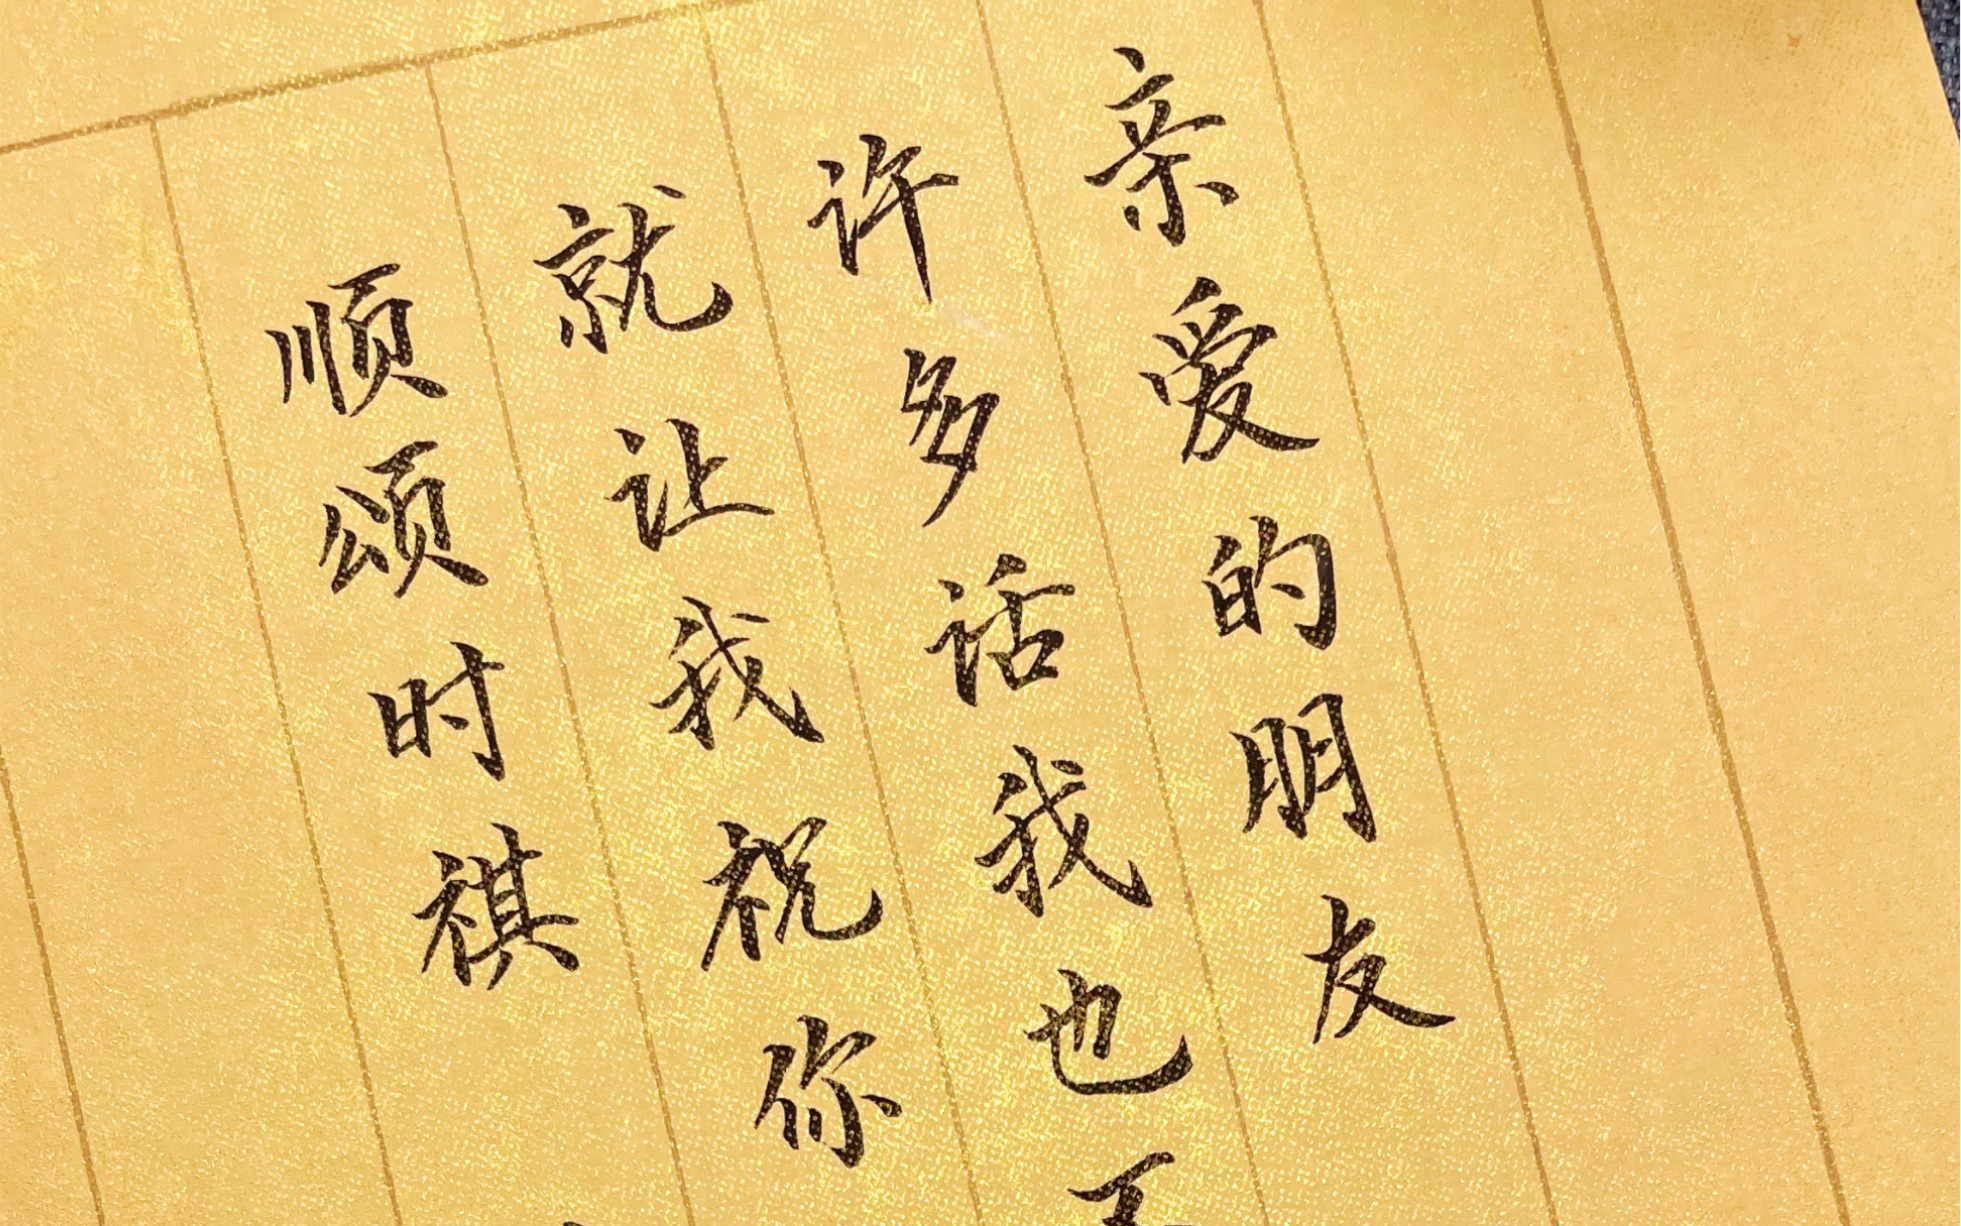 亲爱的朋友
许多话我也不
就让我祝你
顺颂时祺